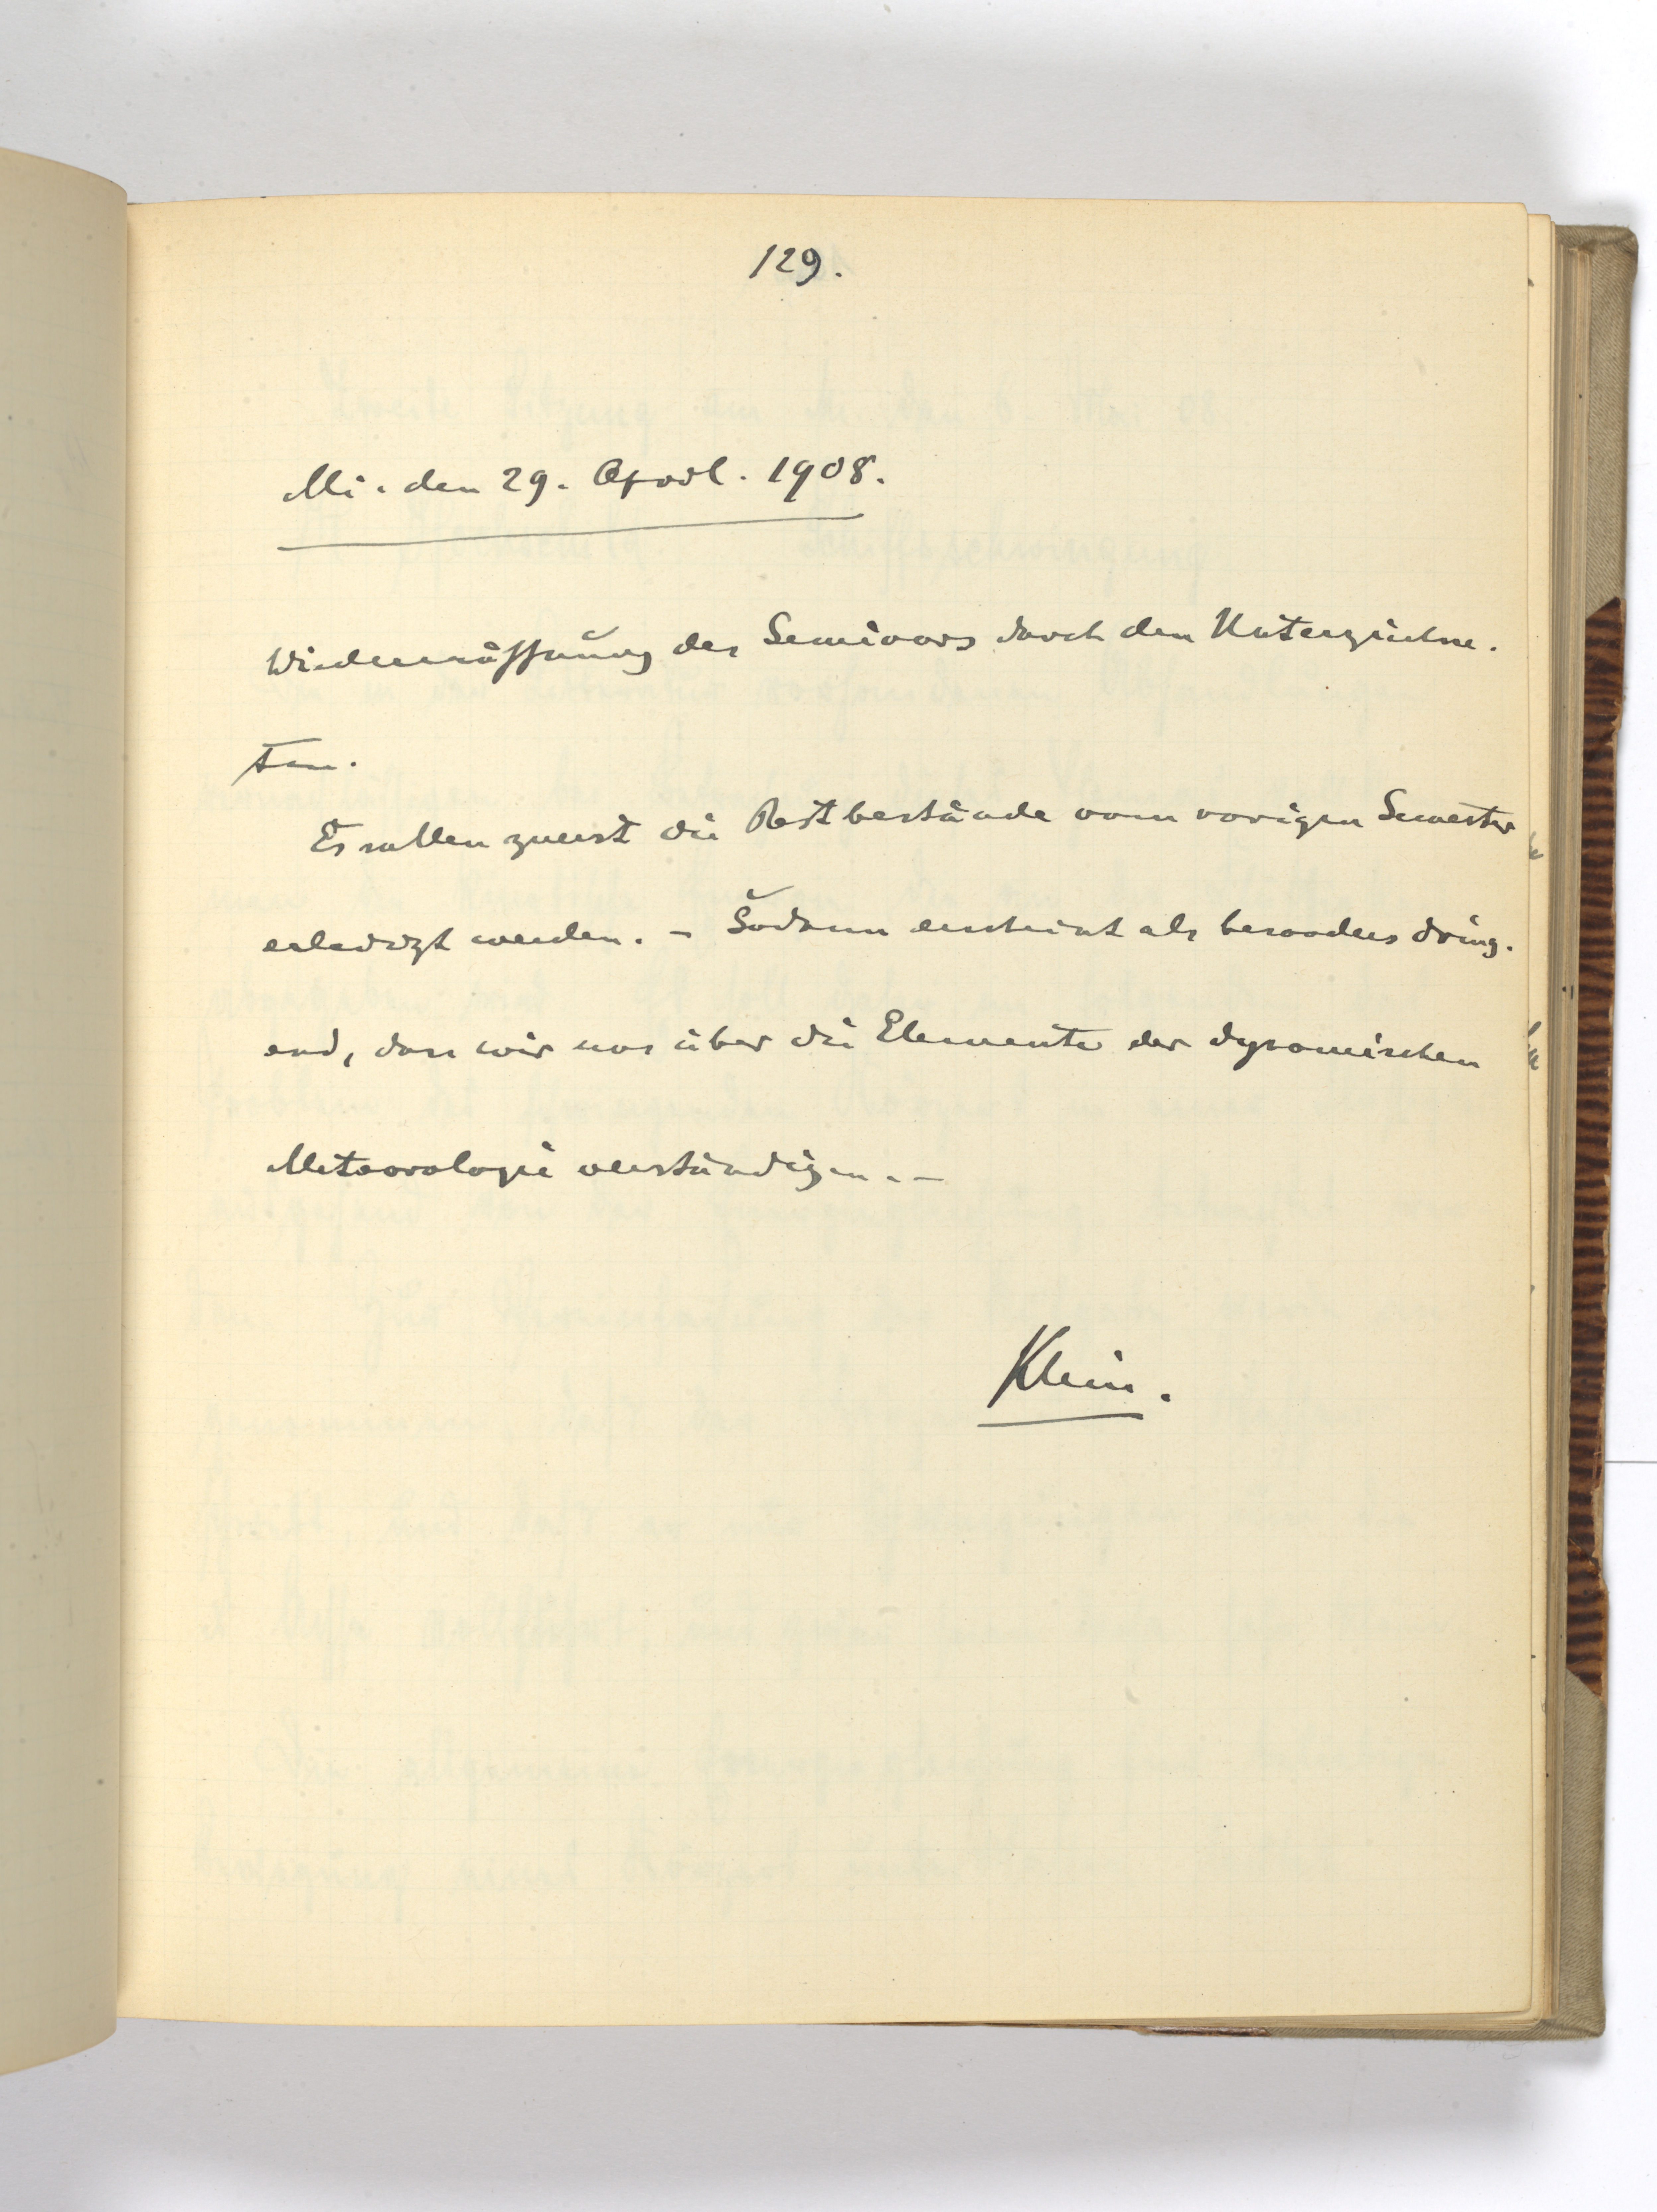 129.
Mi. den 29. April. 1908.
Wiedereröffnung des Seminars durch den Unterzeichne-
ten.
Es sollen zuerst die Restbestände vom vorigen Semester
erledigt werden. – Sodann erscheint als besonders dring-
end, dass wir uns über die Elemente der dynamischen
Meteorologie verständigen. –
Klein.